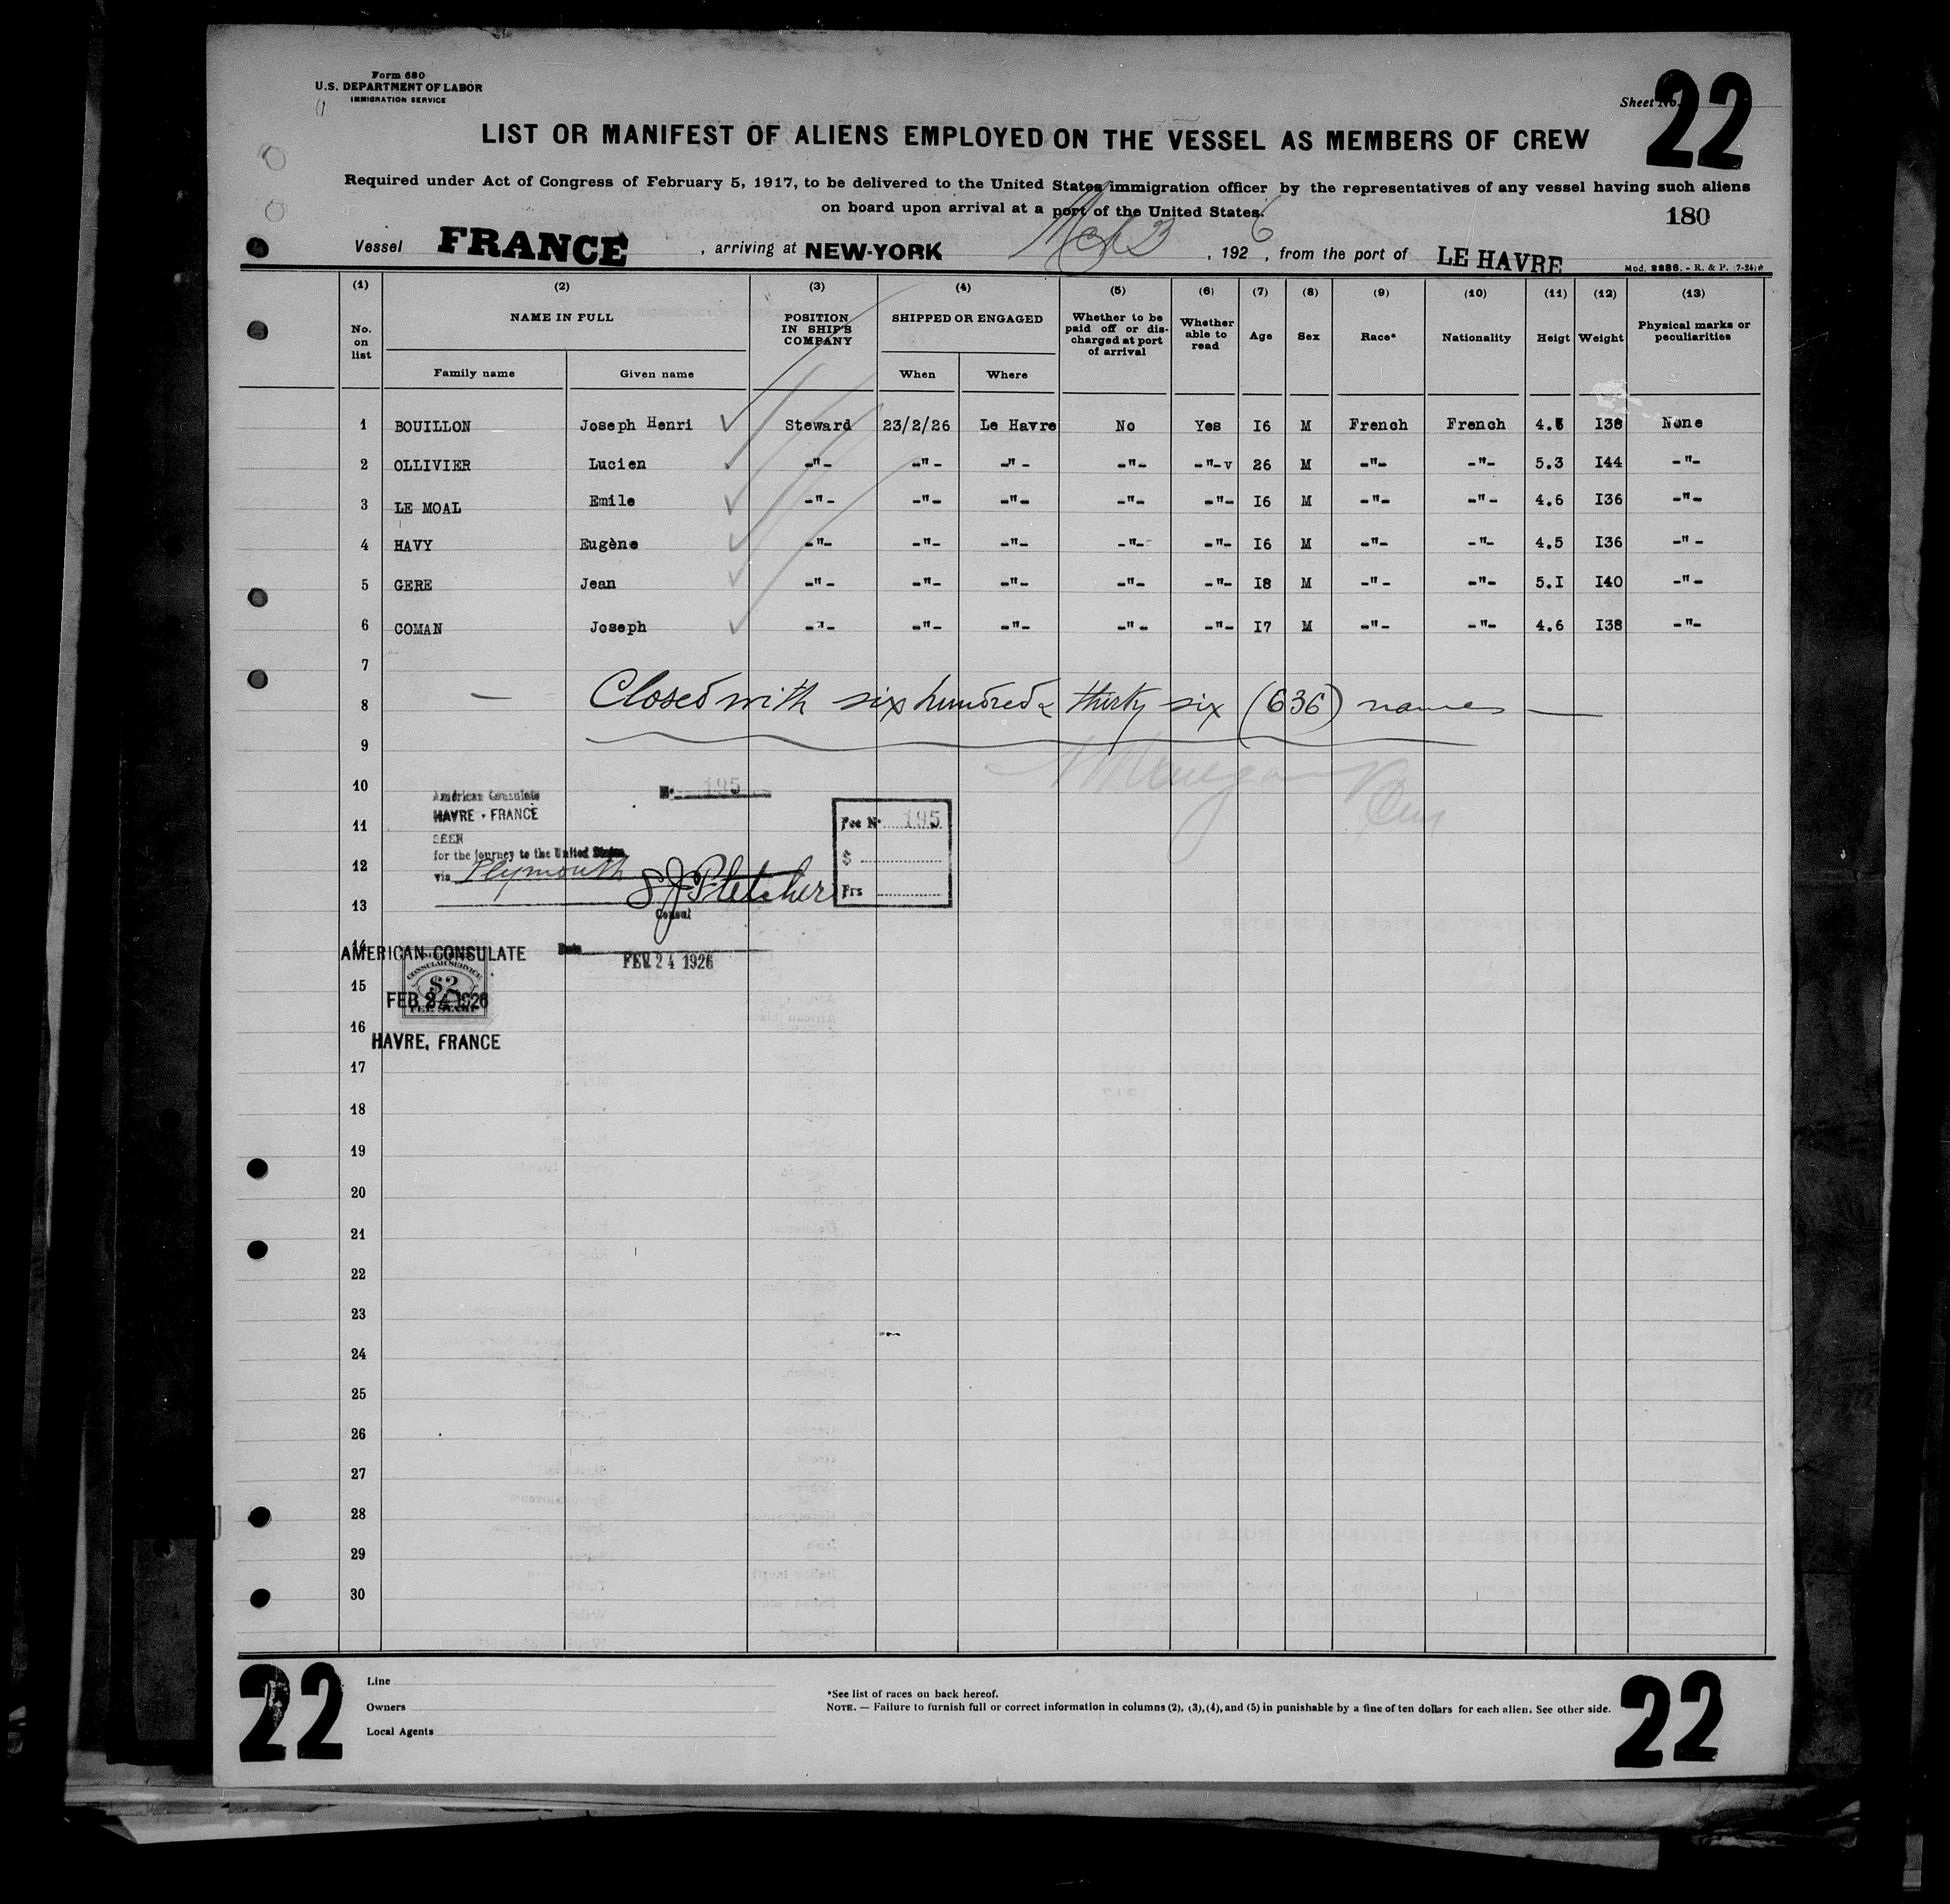 Form 680
U.S. DEPARTMENT OF LABOR
IMMIGRATION SERVICE
Sheet No. 22
LIST OR MANIFEST OF ALIENS EMPLOYED ON THE VESSEL AS MEMBERS OF CREW
Required under Act of Congress of February 5, 1917, to be delivered to the United States immigration officer by the representatives of any vessel having such aliens
on board upon arrival at a port of the United States.
180
Vessel FRANCE, arriving at NEW-YORK Mch 3, 1926, from the port of LE HAVRE
Mod. 2286. - R. & P. (7-24)
(1) (2) (3) (4) (5) (6) (7) (8) (9) (10) (11) (12) (13)
No. on list NAME IN FULL POSITION IN SHIP'S COMPANY SHIPPED OR ENGAGED Whether to be paid off or discharged at port of arrival Whether able to read Age Sex Race* Nationality Heigt Weight Physical marks or peculiarities
Family name Given name When Where
1 BOUILLON Joseph Henri Steward 23/2/26 Le Havre No Yes I6 M French French 4. I38 None
2 OLLIVIER Lucien -"- -"- -"- -"- -"-v 26 M -"- -"- 5.3 I44 -"-
3 LE MOAL Emile -"- -"- -"- -"- -"- I6 M -"- -"- 4.6 I36 -"-
4 HAVY Eugène -"- -"- -"- -"- -"- I6 M -"- -"- 4.5 I36 -"-
5 GERE Jean -"- -"- -"- -"- -"- I8 M -"- -"- 5.I I40 -"-
6 COMAN Joseph -"- -"- -"- -"- -"- I7 M -"- -"- 4.6 I38 -"-
7
8 — Closed with six hundred & thirty six (636) names —
9
10
American Consulate No 195
HAVRE - FRANCE
11
Fee No 195
SEEN
for the journey to the United States
12
$
via Plymouth
S J Fletcher
Frs
13
Consul
14
AMERICAN CONSULATE Date FEB 24 1926
CONSULAR SERVICE
$2
15
FEB 24 1926
FEE STAMP
16
HAVRE, FRANCE
17
18
19
20
21
22
23
24
25
26
27
28
29
30
22
Line
Owners
Local Agents
*See list of races on back hereof.
NOTE. — Failure to furnish full or correct information in columns (2), (3), (4), and (5) in punishable by a fine of ten dollars for each alien. See other side.
22